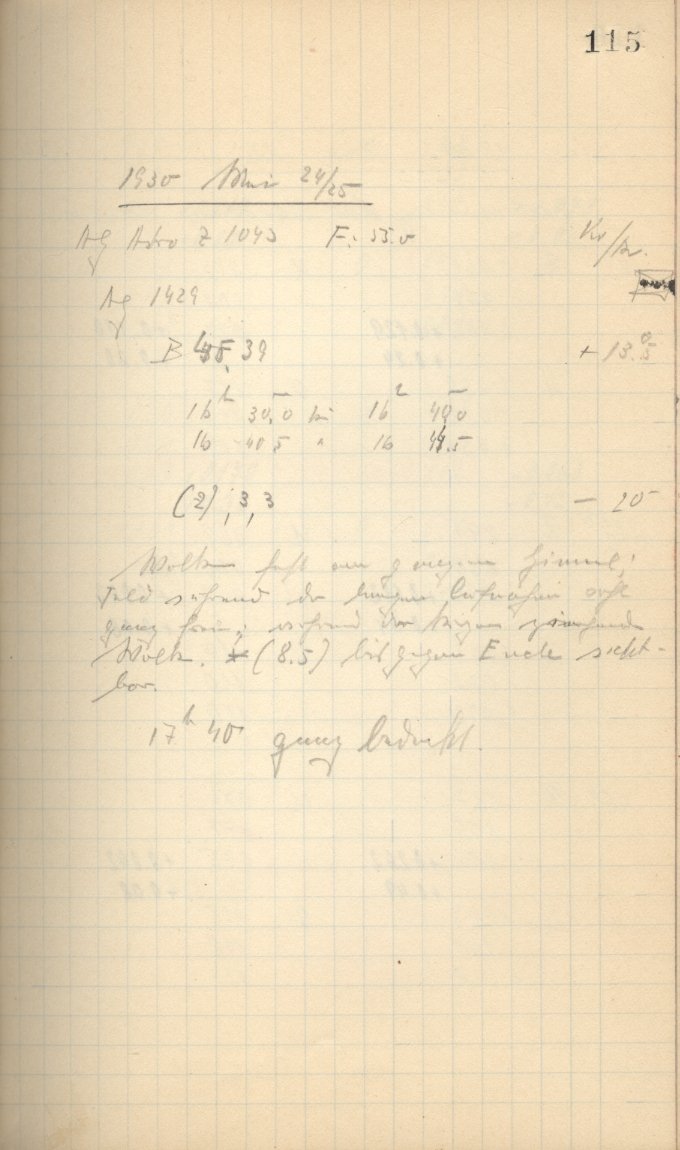 115
1930 Mai 24/25
AG Astro Z 1043 F: 55.0 Kr/
Ag 1429
B 39 + 13.5
16h 30.0 bis 16h 40.0
16 40 5 " 16 44.5
(2), 3, 3 - 20
Wolken fast am ganzen Himmel;
Feld während der langen Aufnahme
ganz frei; während der
Wolk. (8.5) bis gegen Ende sicht-
bar.
17h 40 ganz bedeckt.